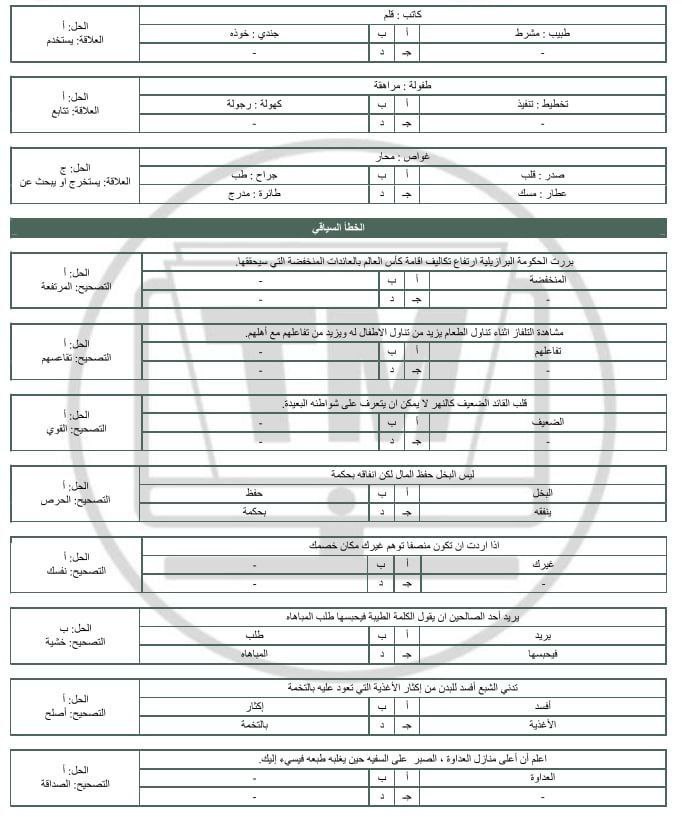 كاتب : قلم
الحل: أ
العلاقة: يستخدم
طبيب : مشرط أ ب جندي : خوذه
- جـ د -
طفولة : مراهقة
الحل: أ
العلاقة: تتابع
تخطيط : تنفيذ أ ب كهولة : رجولة
- جـ د -
غواص : محار
الحل: ج
العلاقة: يستخرج او يبحث عن
صدر : قلب أ ب جراح : طب
عطار : مسك جـ د طائرة : مدرج
الخطأ السياقي
بررت الحكومة البرازيلية ارتفاع تكاليف اقامة كأس العالم بالعائدات المنخفضة التي سيحققها.
الحل: أ
التصحيح: المرتفعة
المنخفضة أ ب -
- جـ د -
مشاهدة التلفاز اثناء تناول الطعام يزيد من تناول الاطفال له ويزيد من تفاعلهم مع أهلهم.
الحل: أ
التصحيح: تقاعسهم
تفاعلهم أ ب -
- جـ د -
قلب القائد الضعيف كالنهر لا يمكن ان يتعرف على شواطئه البعيدة.
الحل: أ
التصحيح: القوي
الضعيف أ ب -
- جـ د -
ليس البخل حفظ المال لكن انفاقه بحكمة
الحل: أ
التصحيح: الحرص
البخل أ ب حفظ
ينفقه جـ د بحكمة
اذا اردت ان تكون منصفا توهم غيرك مكان خصمك
الحل: أ
التصحيح: نفسك
غيرك أ ب -
- جـ د -
يريد أحد الصالحين ان يقول الكلمة الطيبة فيحبسها طلب المباهاه
الحل: ب
التصحيح: خشية
يريد أ ب طلب
فيحبسها جـ د المباهاه
تدني الشبع أفسد للبدن من إكثار الأغذية التي تعود عليه بالتخمة
الحل: أ
التصحيح: أصلح
أفسد أ ب إكثار
الأغذية جـ د بالتخمة
اعلم أن أعلى منازل العداوة ، الصبر على السفيه حين يغلبه طبعه فيسيء إليك.
الحل: أ
التصحيح: الصداقة
العداوة أ ب -
- جـ د -
TM